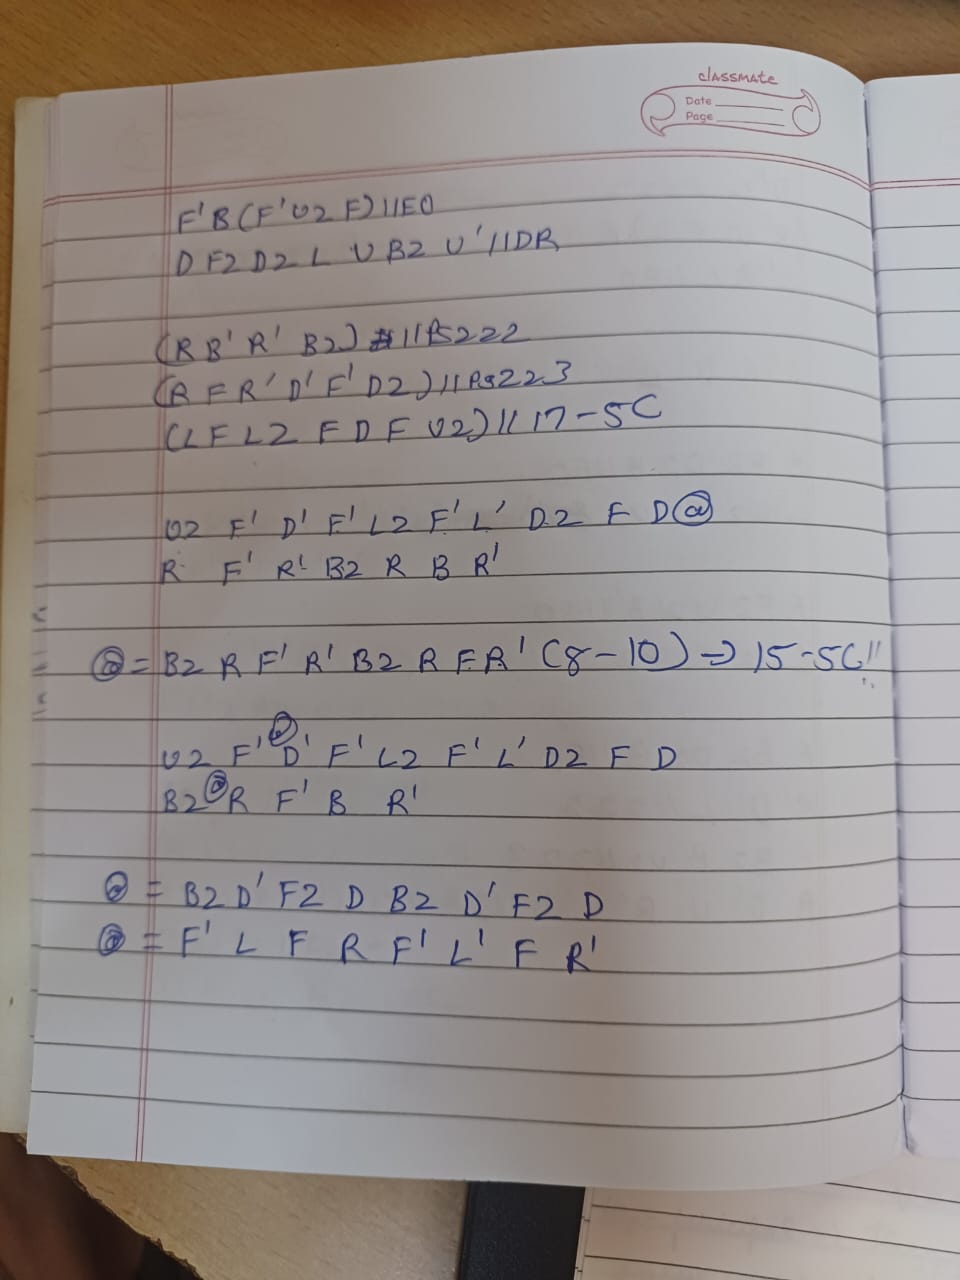 classmate
Date
Page
F' B (F' U2 F) // EO
D F2 D2 L U B2 U' // DR
(R B' R' B2) // Ps222
(R F R' D' F' D2) // Ps223
(L F L2 F D F U2) // 17-5C
U2 F' D' F' L2 F' L' D2 F D @
R F' R' B2 R B R'
@ = B2 R F' R' B2 R F R' (8-10) → 15-5C!!
U2 F' @ D' F' L2 F' L' D2 F D
B2 @ R F' B R'
@ = B2 D' F2 D B2 D' F2 D
@ = F' L F R F' L' F R'